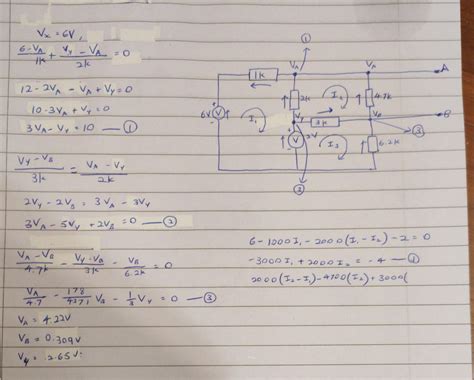 Vx = 6V,
6-VA/1k + VY - VA/2k = 0
12 - 2VA - VA + VY = 0
10 - 3VA + VY = 0
3VA - VY = 10 — ①
VY - VB/3k = VA - VY/2k
2VY - 2VB = 3VA - 3VY
3VA - 5VY + 2VB = 0 — ②
VA - VB/4.7k - VY - VB/3k - VB/6.2k = 0
VA/4.7 - 178/4371 VB - 1/3 VY = 0 — ③
VA = 4.22V
VB = 0.309V
VY = 2.65V
①
1k
VA
VA
A
6V
V
I1
2k
I2
4.7k
VY
3k
VB
B
V
2V
I3
6.2k
③
②
6 - 1000I1 - 2000(I1 - I2) - 2 = 0
-3000I1 + 2000I2 = -4 — ①
2000(I2 - I1) - 4700(I2) + 3000(